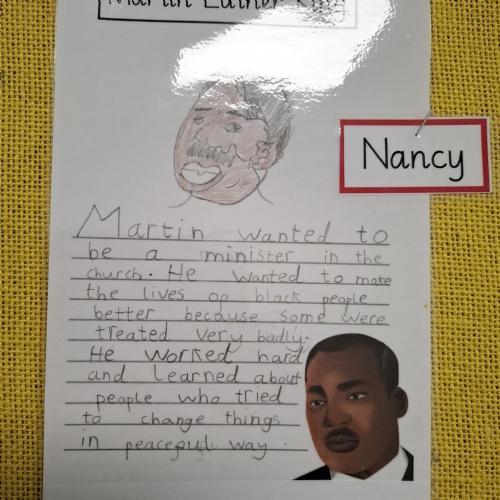 Martin Luther King
Nancy
Martin wanted to
be a minister in the
church. He wanted to make
the lives op black people
better because some were
treated very badly.
He worked hard
and learned about
people who tried
to change things
in peacepul way.